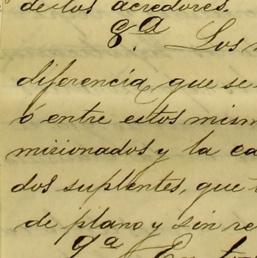 de los acredores.
8.ª Los
diferencia, que se
ó entre estos mism
misionados y la ca
dos suplentes, que
de plano y sin re
9ª En